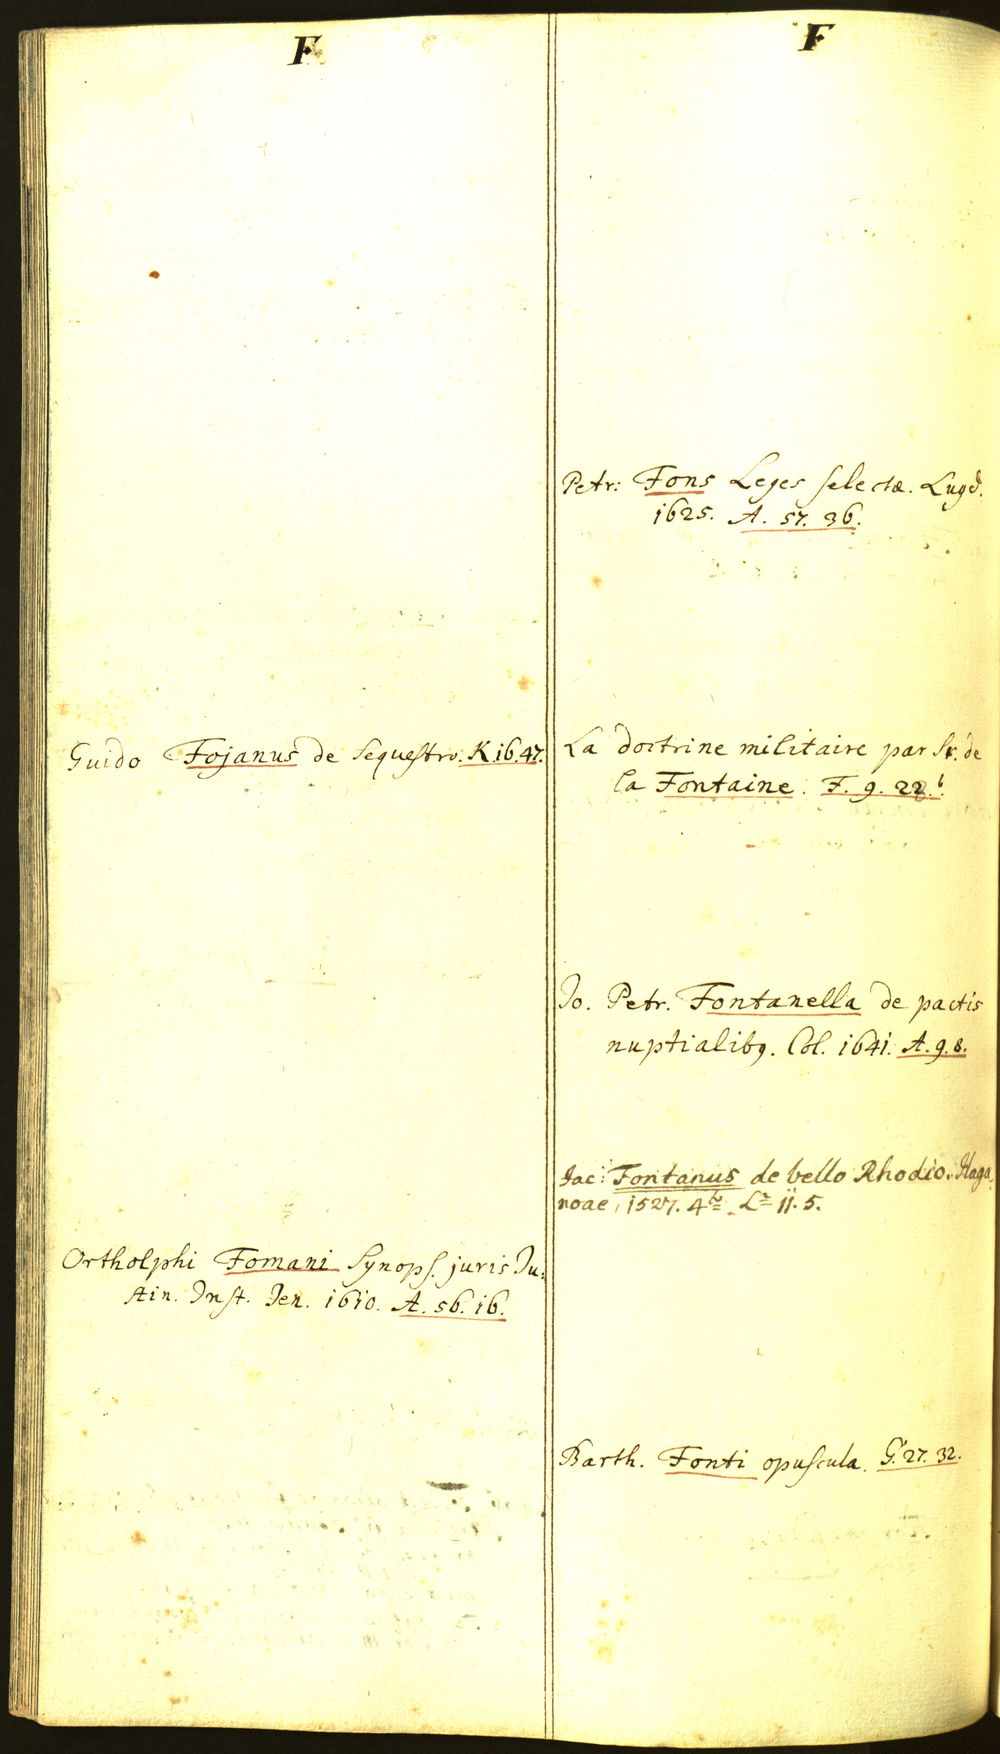 F
Guido Fojanus de Sequestro. K.16.47.
Ortholphi Fomani Synops. juris Ju:
stin. Inst. Jen. 1610. A. 56. 16.
F
Petr: Fons Leges selectæ. Lugd.
1625. A. 57. 36.
La doctrine militaire par Sr. de
la Fontaine. F. 9. 22.b.
Jo. Petr. Fontanella de pactis
nuptialibꝫ. Col. 1641. A. 9. 8.
Jac: Fontanus de bello Rhodio. Haga
noae, 1527. 4to 11. 5.
Barth. Fonti opuscula. G. 27. 32.